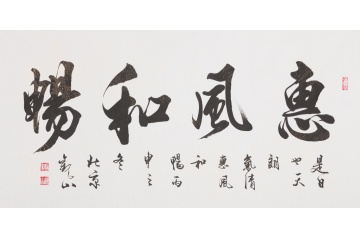 惠風和暢
是日
也天
朗
氣清
惠風
和
暢丙
申之
冬
北京
山